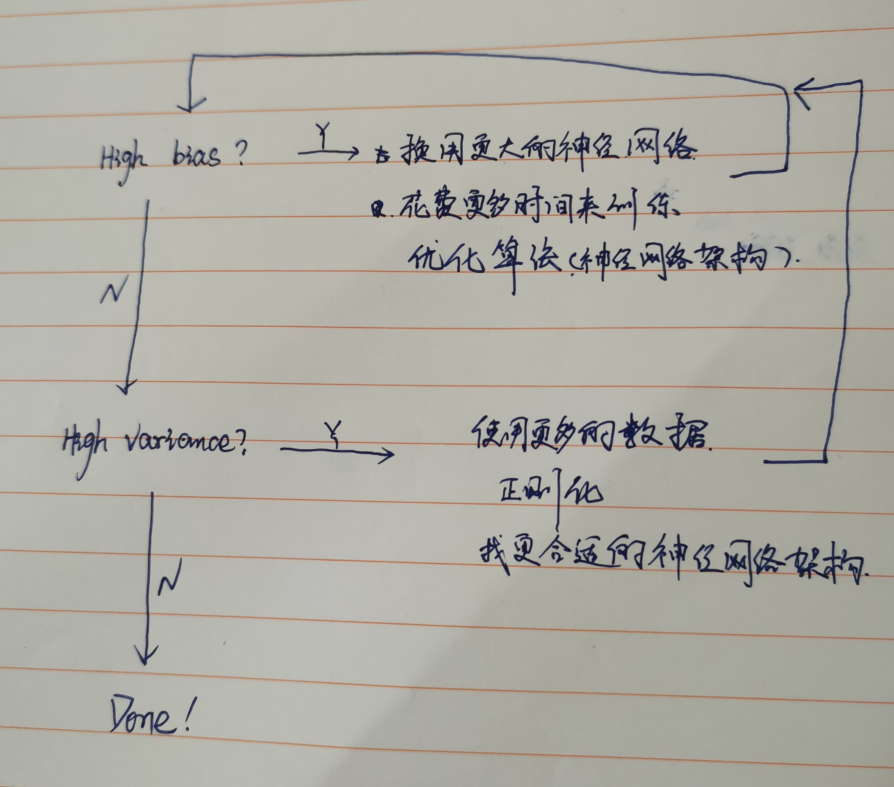 High bias?
Y
换用更大的神经网络.
花费更多时间来训练、
优化算法(神经网络架构).
N
High variance?
Y
使用更多的数据.
正则化
找更合适的神经网络架构.
N
Done!